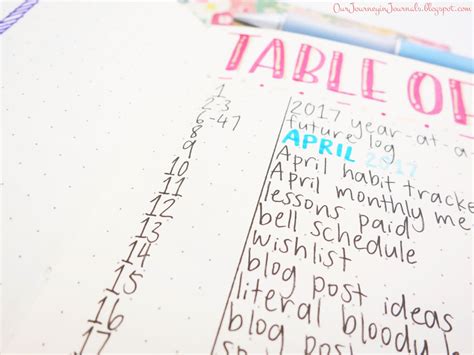 OurJourneyinJournals.blogspot.com
TABLE OF
1 2017 year-at-a-
2-3 future log
6-47 APRIL 2017
8 April habit tracke
9 April monthly me
10 lessons paid
11 bell schedule
12 wishlist
13 blog post ideas
14 literal bloody
15 blog post
16
17